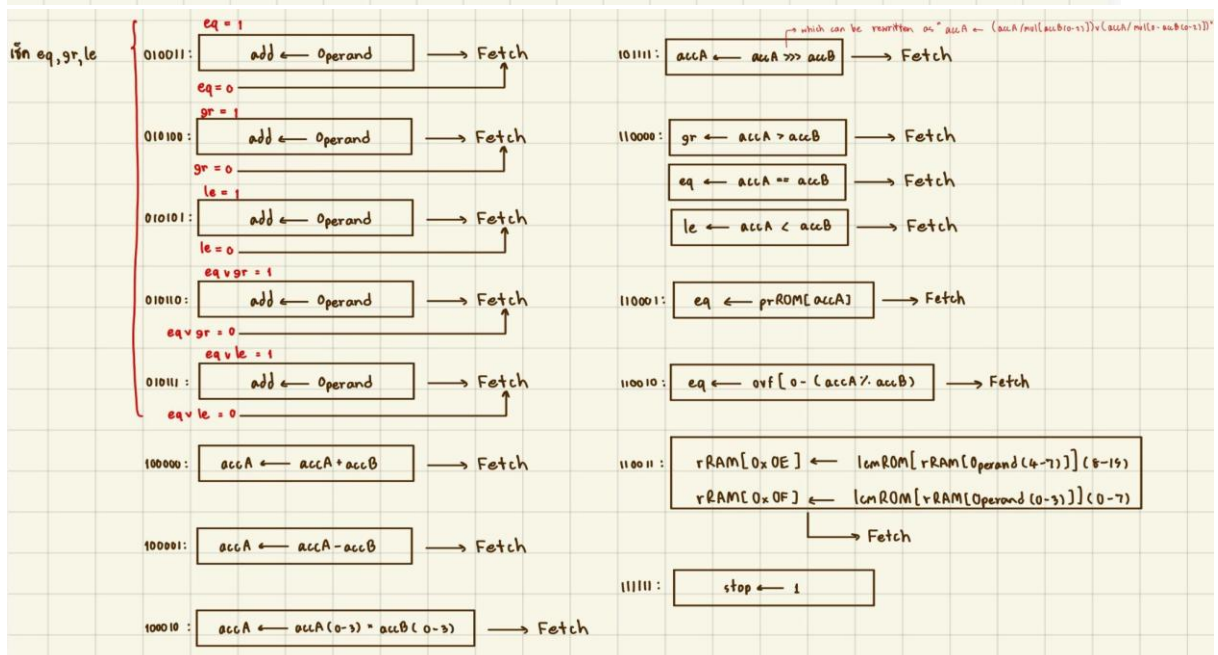 เช็ก eq,gr,le
eq = 1
010011: add ← Operand → Fetch
eq = 0
gr = 1
010100: add ← Operand → Fetch
gr = 0
le = 1
010101: add ← Operand → Fetch
le = 0
eq v gr = 1
010110: add ← Operand → Fetch
eq v gr = 0
eq v le = 1
010111 : add ← Operand → Fetch
eq v le = 0
100000: accA ← accA + accB → Fetch
100001: accA ← accA - accB → Fetch
100010 : accA ← accA(0-3) * accB(0-3) → Fetch
which can be rewritten as "accA ←
101111: accA ← accA >>> accB → Fetch
110000: gr ← accA > accB → Fetch
eq ← accA == accB → Fetch
le ← accA < accB → Fetch
110001: eq ← prROM[accA] → Fetch
110010: eq ← ovf[0-(accA % accB) → Fetch
110011: rRAM[0x0E] ← lcmROM[rRAM[Operand(4-7)]](8-15)
rRAM[0x0F] ← lcmROM[rRAM[Operand(0-3)]](0-7)
→ Fetch
111111: stop ← 1